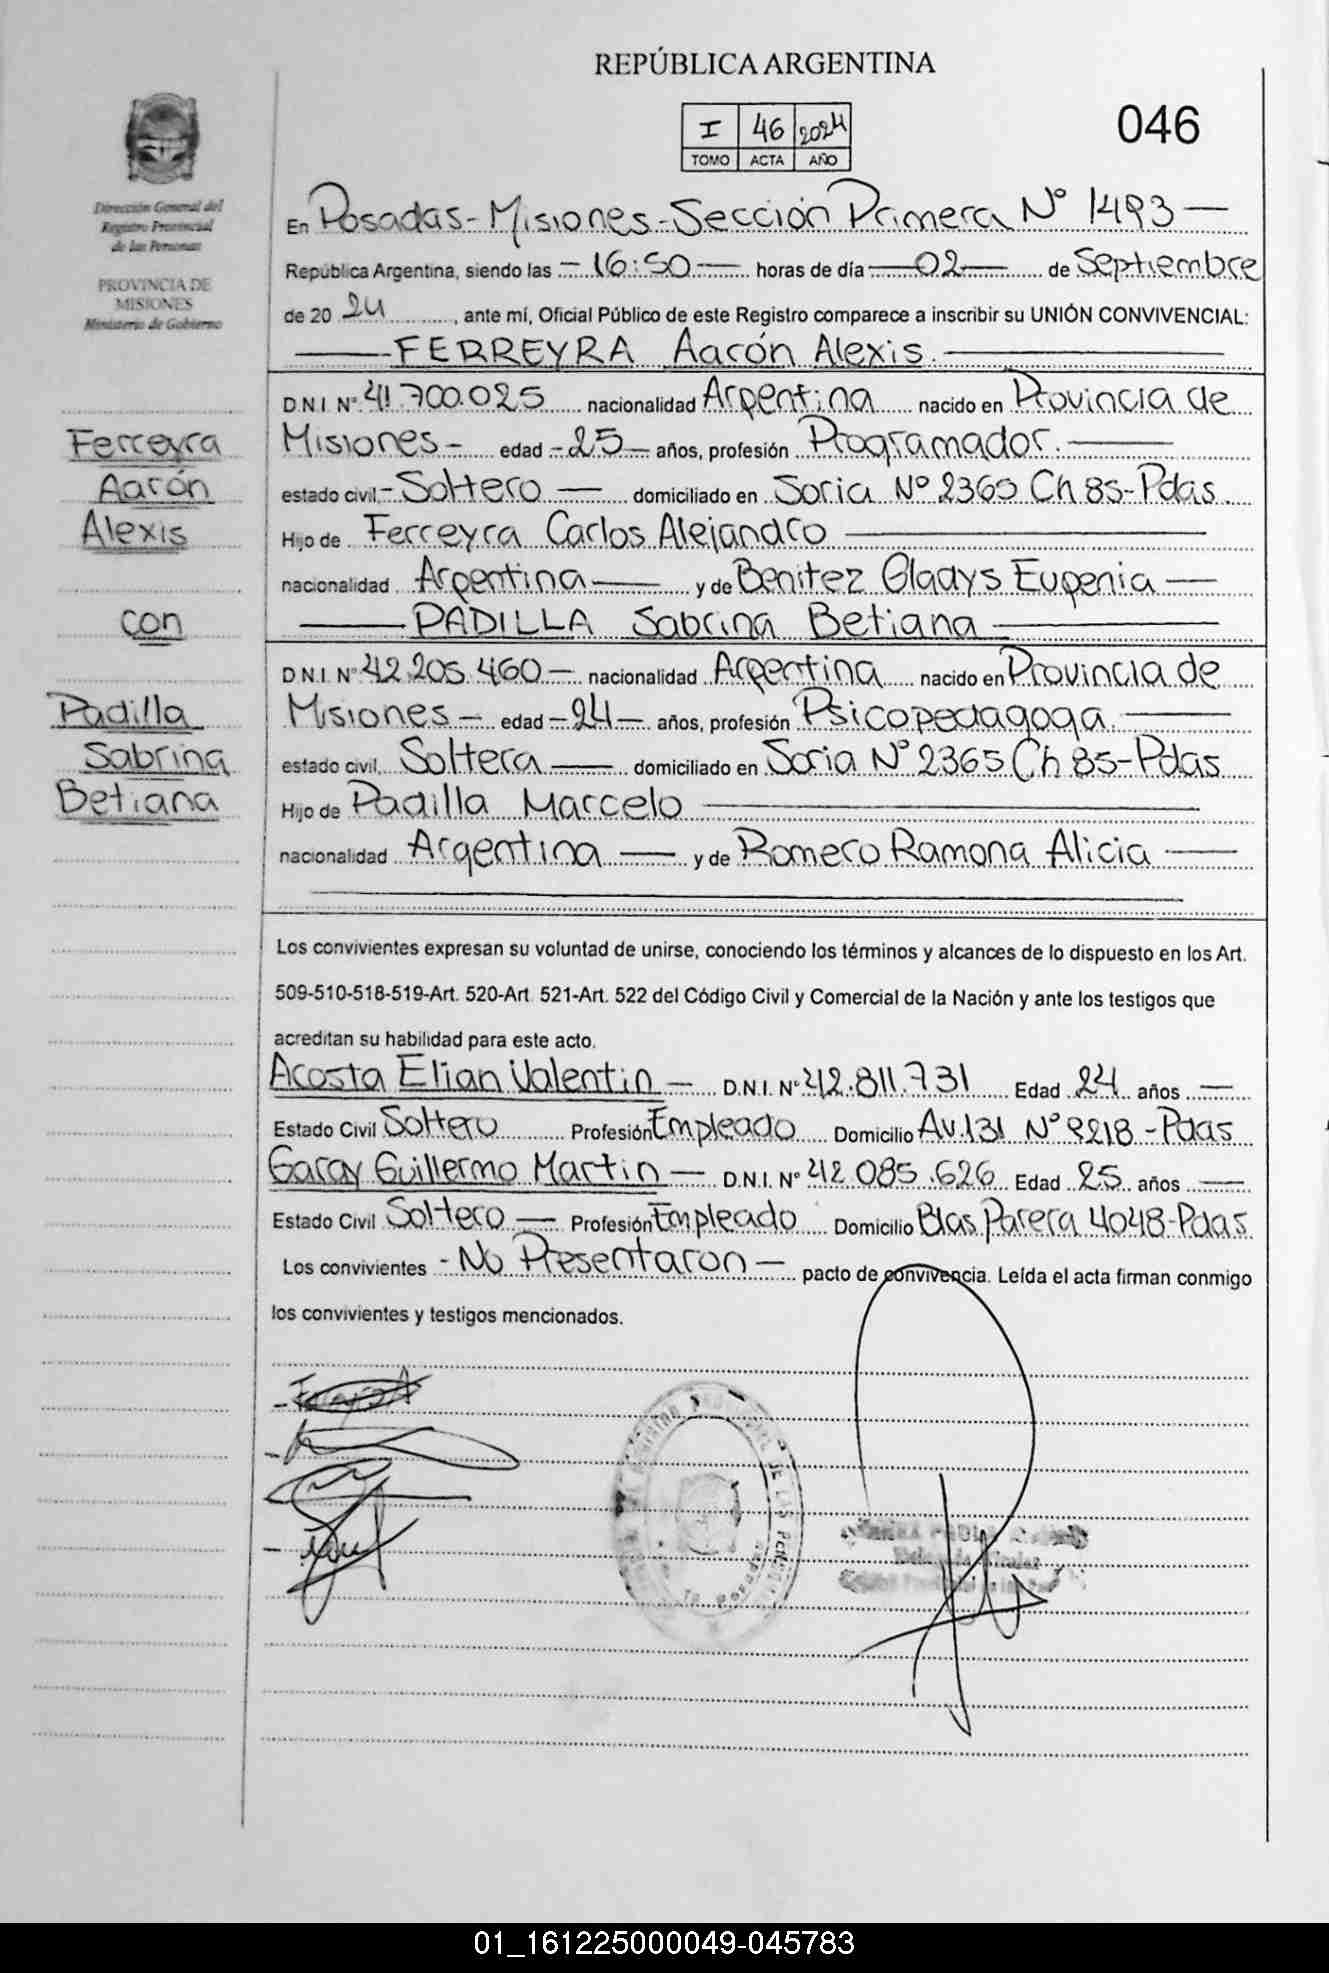 REPÚBLICA ARGENTINA
I 46 2024
TOMO ACTA AÑO
046
Dirección General del
Registro Provincial
de las Personas
PROVINCIA DE
MISIONES
Ministerio de Gobierno
En Posadas - Misiones - Sección Primera N° 1493 —
República Argentina, siendo las - 16:50 — horas de día — 02 — de Septiembre
de 20 24, ante mí, Oficial Público de este Registro comparece a inscribir su UNIÓN CONVIVENCIAL:
— FERREYRA Aarón Alexis. —
D.N.I. N° 41.700.025 nacionalidad Argentina nacido en Provincia de
Misiones - edad - 25 — años, profesión Programador. —
estado civil, - Soltero — domiciliado en Soria N° 2365 Ch 85 - Pdas.
Hijo de Ferreyra Carlos Alejandro —
nacionalidad Argentina — y de Benitez Gladys Eugenia —
— PADILLA Sabrina Betiana —
D.N.I. N° 42.205.460 — nacionalidad Argentina nacido en Provincia de
Misiones - edad - 24 — años, profesión Psicopedagoga. —
estado civil, Soltera — domiciliado en Soria N° 2365 Ch 85 - Pdas
Hijo de Padilla Marcelo —
nacionalidad Argentina — y de Romero Ramona Alicia —
Ferreyra
Aarón
Alexis
con
Padilla
Sabrina
Betiana
Los convivientes expresan su voluntad de unirse, conociendo los términos y alcances de lo dispuesto en los Art.
509-510-518-519-Art. 520-Art. 521-Art. 522 del Código Civil y Comercial de la Nación y ante los testigos que
acreditan su habilidad para este acto.
Acosta Elian Valentin — D.N.I. N° 42.811.731 Edad 24 años —
Estado Civil Soltero Profesión Empleado Domicilio Av. 131 N° 9218 - Pdas
Garay Guillermo Martin — D.N.I. N° 42.085.626 Edad 25 años —
Estado Civil Soltero — Profesión Empleado Domicilio Blas Parera 4048 - Pdas
Los convivientes - No Presentaron — pacto de convivencia. Leída el acta firman conmigo
los convivientes y testigos mencionados.
01_161225000049-045783